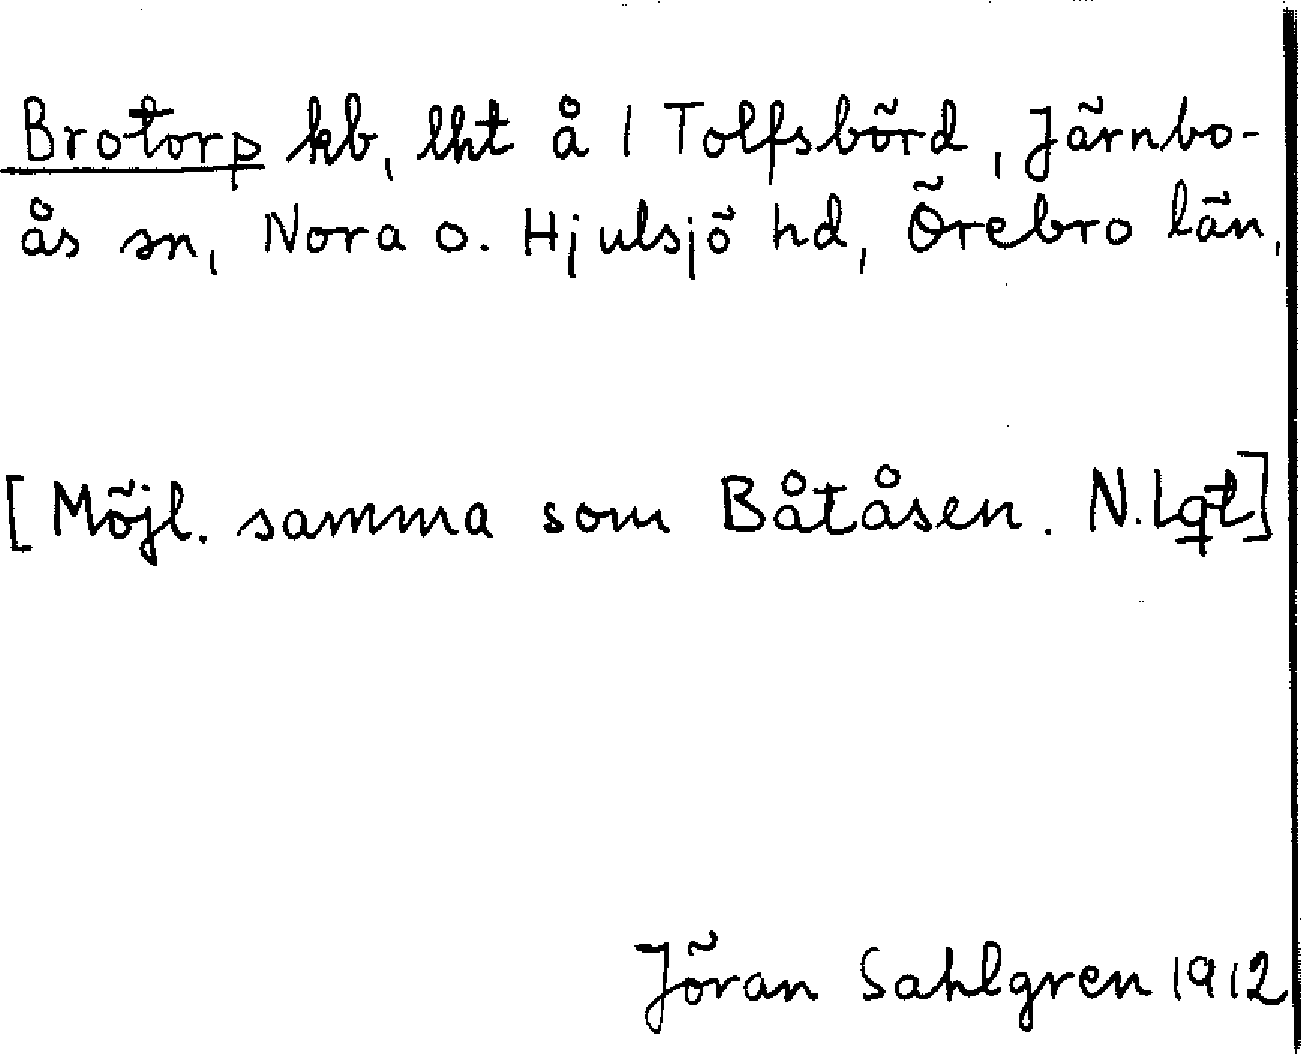 Brotorp kb, lht å 1 Tolfsbörd, Järnbo-
ås sn, Nora o. Hjulsjö hd, Örebro län,
[Möjl. samma som Båtåsen. N.Lqt]
Jöran Sahlgren 1912